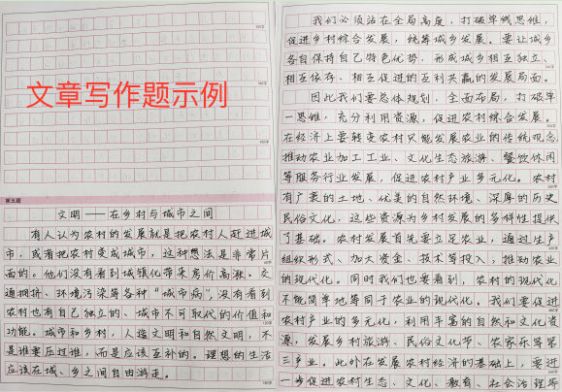 文章写作题示例
第五题
文明——在乡村与城市之间
有人认为农村的发展就是把农村人赶进城
市,或者把农村变成城市,这种想法是非常片
面的。他们没有看到城镇化带来房价高涨、交
通拥挤、环境污染等各种“城市病”,没有看到
农村也有自己独立的、城市不可取代的价值和
功能。城市和乡村,人造文明和自然文明,不
是谁要压过谁,而是应该互补的。理想的生活
应该在城、乡之间自由游走。
我们必须站在全局高度,打破单线思维,
促进乡村综合发展,统筹城乡发展。要让城乡
各自保持自己特色优势,形成城乡相互独立、
相互依存、相互促进的互利共赢的发展局面。
因此我们要总体规划,全面布局,打破单
一思维,充分利用资源,促进农村综合发展。
在经济上要转变农村只能发展农业的传统观念,
推动农业加工工业、文化生态旅游、餐饮休闲
等服务行业发展,促进农村产业多元化。农村
有广袤的土地、优美的自然环境、深厚的历史
民俗文化,这些资源为乡村发展的多样性提供
了基础。农村发展首先要立足农业,通过生产
组织形式、加大资金、技术等投入,推动农业
的现代化。同时我们也要看到,农村的现代化
不能简单地等同于农业的现代化。我们要促进
农村产业的多元化,利用丰富的自然和文化资
源,发展乡村旅游、民俗文化节、农家乐等第
三产业。此外在发展农村经济的基础上,要进
一步促进农村生态、文化、教育、社会治理等